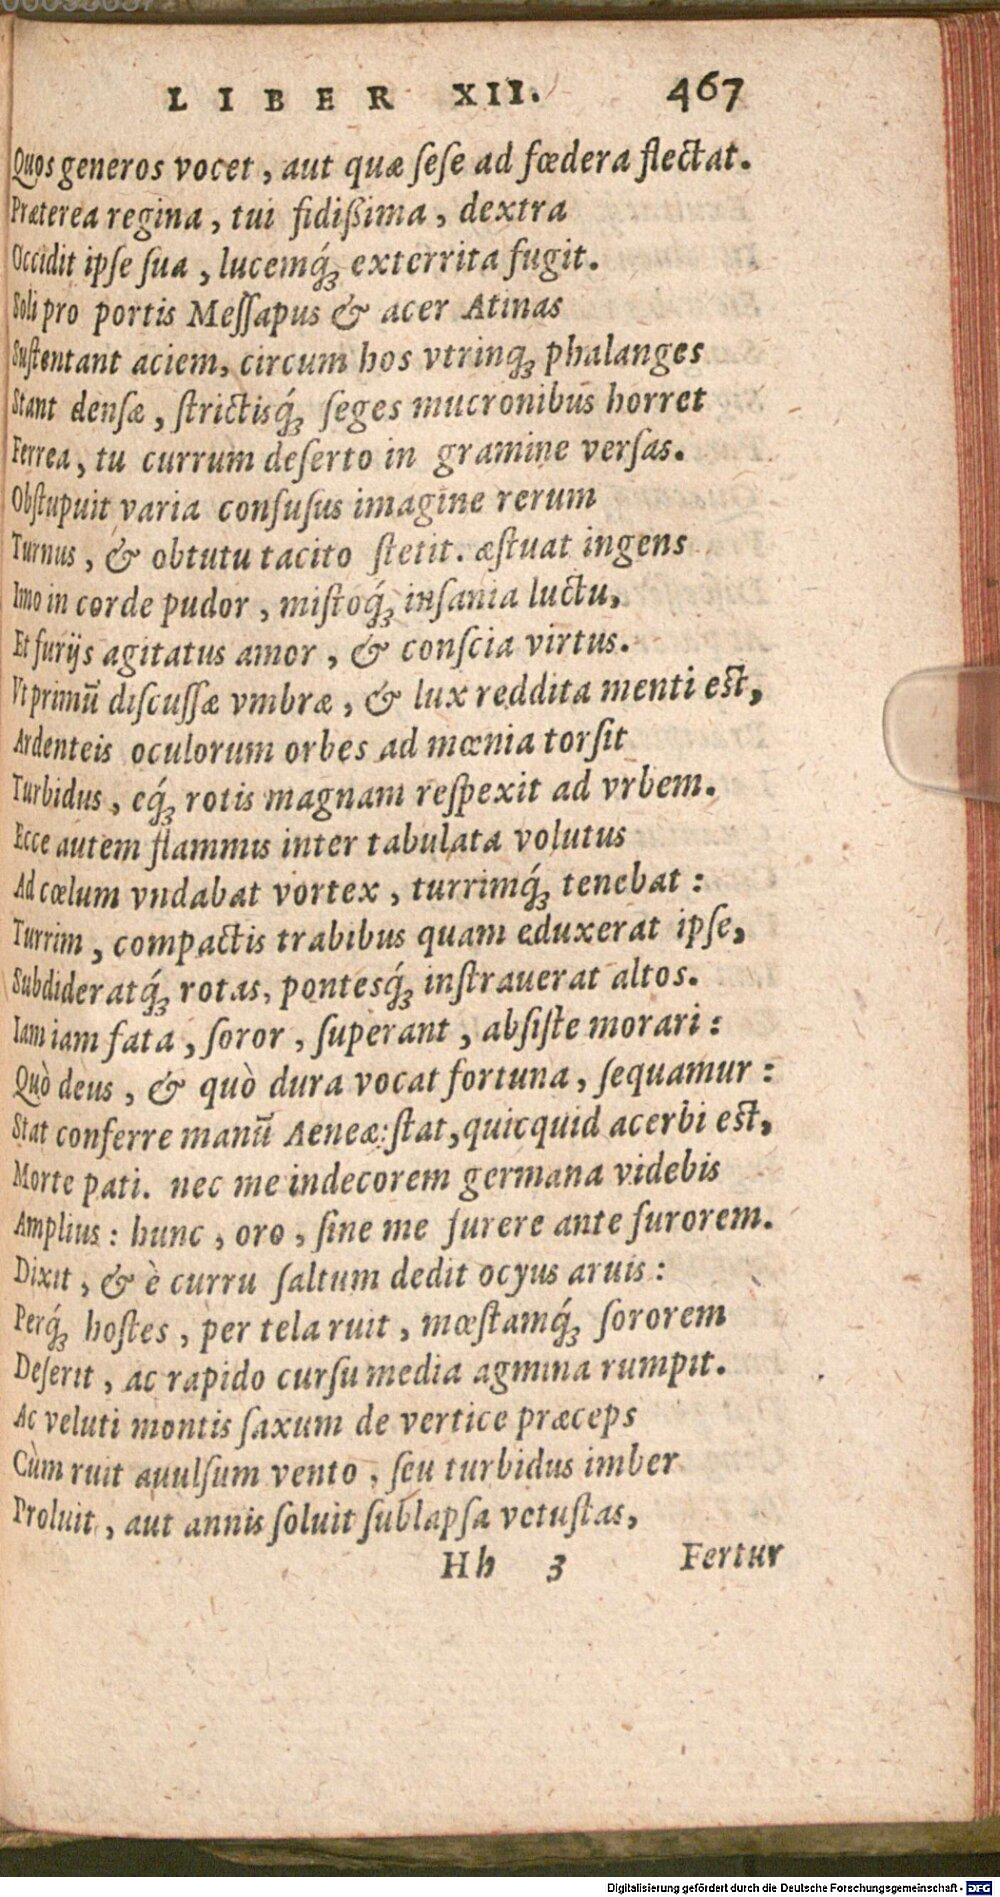 LIBER XII. 467
Quos generos vocet, aut quæ ſeſe ad fœdera flectat.
Præterea regina, tui fidißima, dextra
Occidit ipſe ſua, lucemq́ꝫ exterrita fugit.
Soli pro portis Meſſapus & acer Atinas
Suſtentant aciem, circum hos vtrinqꝫ phalanges
Stant denſæ, ſtrictisq́ꝫ ſeges mucronibus horret
Ferrea, tu currum deſerto in gramine verſas.
Obſtupuit varia conſuſus imagine rerum
Turnus, & obtutu tacito ſtetit. æſtuat ingens
Imo in corde pudor, miſtoq́ꝫ inſania luctu,
Et furijs agitatus amor, & conſcia virtus.
Vt primū diſcuſſæ vmbræ, & lux reddita menti eſt,
Ardenteis oculorum orbes ad mœnia torſit
Turbidus, eq́ꝫ rotis magnam reſpexit ad vrbem.
Ecce autem flammis inter tabulata volutus
Ad cœlum vndabat vortex, turrimq́ꝫ tenebat:
Turrim, compactis trabibus quam eduxerat ipſe,
Subdideratq́ꝫ rotas, pontesq́ꝫ inſtrauerat altos.
Iam iam fata, ſoror, ſuperant, abſiſte morari:
Quò deus, & quò dura vocat fortuna, ſequamur:
Stat conferre manū Aeneæ: ſtat, quicquid acerbi eſt,
Morte pati. nec me indecorem germana videbis
Amplius: hunc, oro, ſine me furere ante furorem.
Dixit, & è curru ſaltum dedit ocyus aruis:
Perq́ꝫ hoſtes, per tela ruit, mœſtamq́ꝫ ſororem
Deſerit, ac rapido curſu media agmina rumpit.
Ac veluti montis ſaxum de vertice præceps
Cùm ruit auulſum vento, ſeu turbidus imber
Proluit, aut annis ſoluit ſublapſa vetuſtas,
Hh 3 Fertur
Digitalisierung gefördert durch die Deutsche Forschungsgemeinschaft - DFG